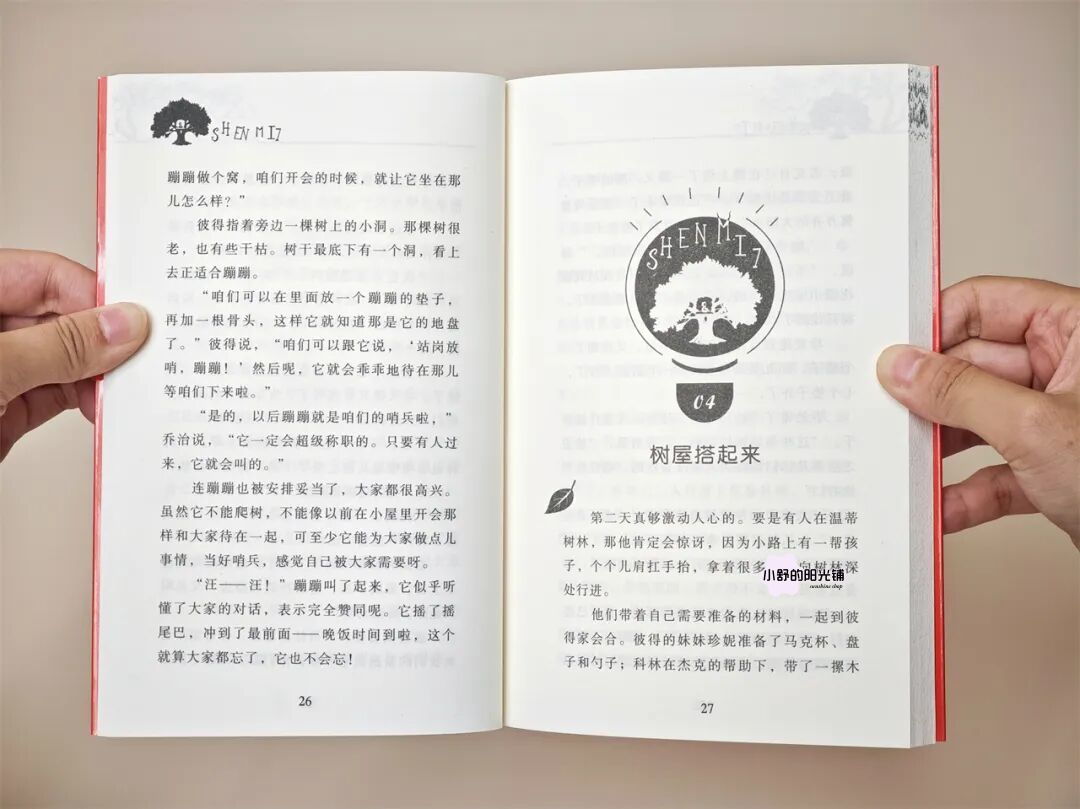 SHEN MI7
蹦蹦做个窝，咱们开会的时候，就让它坐在那
儿怎么样？”
彼得指着旁边一棵树上的小洞。那棵树很
老，也有些干枯。树干最底下有一个洞，看上
去正适合蹦蹦。
“咱们可以在里面放一个蹦蹦的垫子，
再加一根骨头，这样它就知道那是它的地盘
了。”彼得说，“咱们可以跟它说，‘站岗放
哨，蹦蹦！’然后呢，它就会乖乖地待在那儿
等咱们下来啦。”
“是的，以后蹦蹦就是咱们的哨兵啦，”
乔治说，“它一定会超级称职的。只要有人过
来，它就会叫的。”
连蹦蹦也被安排妥当了，大家都很高兴。
虽然它不能爬树，不能像以前在小屋里开会那
样和大家待在一起，可至少它能为大家做点儿
事情，当好哨兵，感觉自己被大家需要呀。
“汪——汪！”蹦蹦叫了起来，它似乎听
懂了大家的对话，表示完全赞同呢。它摇了摇
尾巴，冲到了最前面——晚饭时间到啦，这个
就算大家都忘了，它也不会忘！
26
SHEN MI7
04
树屋搭起来
第二天真够激动人心的。要是有人在温蒂
树林，那他肯定会惊讶，因为小路上有一帮孩
子，个个儿肩扛手抬，拿着很多 向树林深
处行进。
小舒的阳光铺
sunshine shop
他们带着自己需要准备的材料，一起到彼
得家会合。彼得的妹妹珍妮准备了马克杯、盘
子和勺子；科林在杰克的帮助下，带了一摞木
27